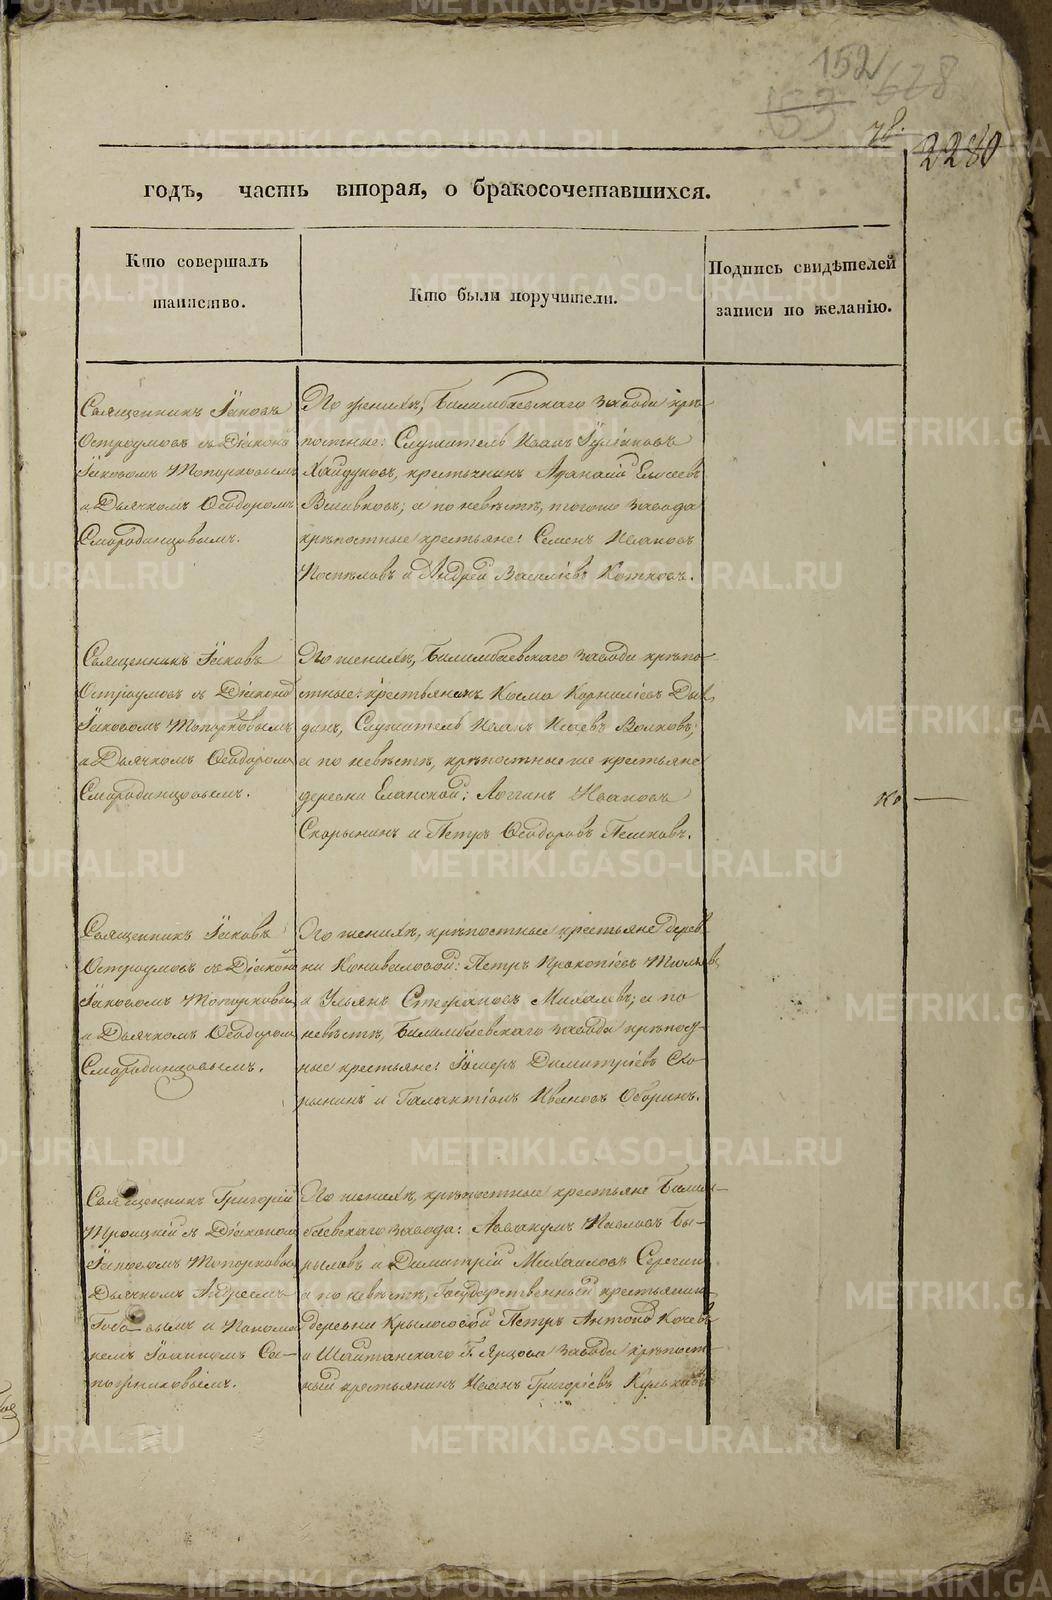 152
628
2280
годъ, часть вторая, о бракосочетавшихся.
Кто совершалъ
таинство.
Кто были поручители.
Подпись свидѣтелей
записи по желанію.
Священникъ Іаковъ
Остроумовъ съ Діакономъ
Іаковомъ Топорковымъ
и Дьячкомъ Ѳеодоромъ
Смородинцовымъ.
По женихѣ, Билимбаевскаго завода крѣ
постные: Служитель Иванъ
Хайдуковъ, крестьянинъ Афанасій Елисеевъ
и по невѣстѣ, тогоже завода
крѣпостные крестьяне: Семенъ Ивановъ
Поспѣловъ и Андрей Васильевъ Котковъ.
Священникъ Іаковъ
Остроумовъ съ Діакономъ
Іаковомъ Топорковымъ
и Дьячкомъ Ѳеодоромъ
Смородинцовымъ.
По женихѣ, Билимбаевскаго завода крѣпо
стные: крестьянинъ Косма Корниліевъ Дыл
динъ, Служитель Иванъ Исаевъ Волковъ;
а по невѣстѣ, крѣпостные же крестьяне
деревни Еланской: Логгинъ Ивановъ
Скорынинъ и Петръ Ѳеодоровъ Пешковъ.
Священникъ Іаковъ
Остроумовъ съ Діакономъ
Іаковомъ Топорковымъ
и Дьячкомъ Ѳеодоромъ
Смородинцовымъ.
По женихѣ, крѣпостные крестьяне дерев
ни Коноваловой: Петръ Прокопіевъ
и Ульянъ Стефановъ Михалевъ; а по
невѣстѣ, Билимбаевскаго завода крѣпост
ные крестьяне: Димитріевъ Ско
рынинъ и Галактіонъ Ивановъ Оборинъ.
Священникъ Григорій
Троицкій съ Діакономъ
Іаковомъ Топорковымъ
Дьячкомъ Андреемъ
и Понома
ремъ Іоанномъ Са-
пожниковымъ.
По женихѣ, крѣпостные крестьяне Билим-
баевскаго завода: Аввакумъ Павловъ Бы-
рыловъ и Димитрій Михаиловъ Серегинъ
а по невѣстѣ, Государственный крестьянинъ
деревни Крылосовой Петръ Антоновъ Кочевъ
и Шайтанскаго Г. Ярцова завода крѣпост-
ный крестьянинъ Иванъ Григорьевъ
METRIKI.GASO-URAL.RU